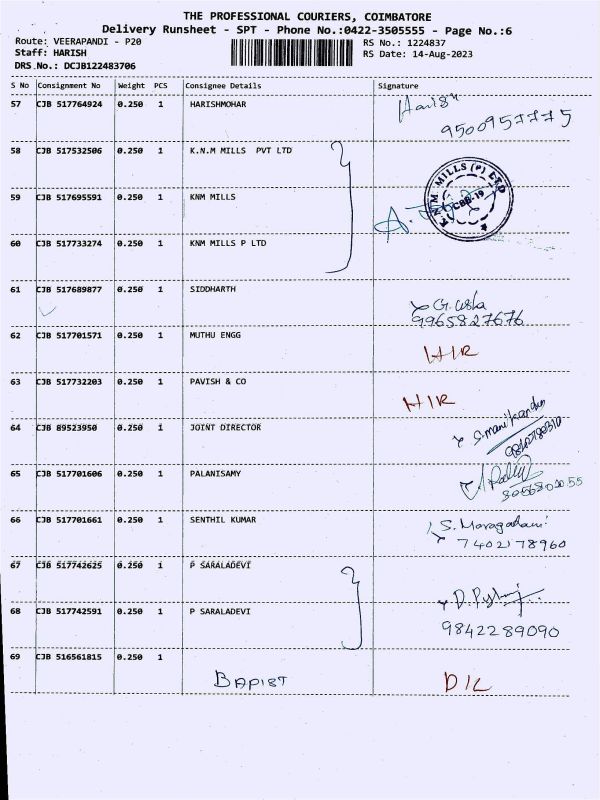 THE PROFESSIONAL COURIERS, COIMBATORE
Delivery Runsheet - SPT - Phone No.:0422-3505555 - Page No.:6
Route: VEERAPANDI - P20
RS No.: 1224837
Staff: HARISH
RS Date: 14-Aug-2023
DRS No.: DCJB122483706
S No Consignment No Weight PCS Consignee Details Signature
57 CJB 517764924 0.250 1 HARISHMOHAR Harish
9500957775
58 CJB 517532506 0.250 1 K.N.M MILLS PVT LTD
K.N.M. MILLS (P) LTD
CBB-19
59 CJB 517695591 0.250 1 KNM MILLS
60 CJB 517733274 0.250 1 KNM MILLS P LTD
61 CJB 517689877 0.250 1 SIDDHARTH
G. Usha
9965827676
62 CJB 517701571 0.250 1 MUTHU ENGG
H/R
63 CJB 517732203 0.250 1 PAVISH & CO
H/R
64 CJB 89523950 0.250 1 JOINT DIRECTOR
S. Manikandan
65 CJB 517701606 0.250 1 PALANISAMY
66 CJB 517701661 0.250 1 SENTHIL KUMAR S. Maragadani
7402178960
67 CJB 517742625 0.250 1 P SARALADEVI
68 CJB 517742591 0.250 1 P SARALADEVI
9842289090
69 CJB 516561815 0.250 1
BAPIST D/L